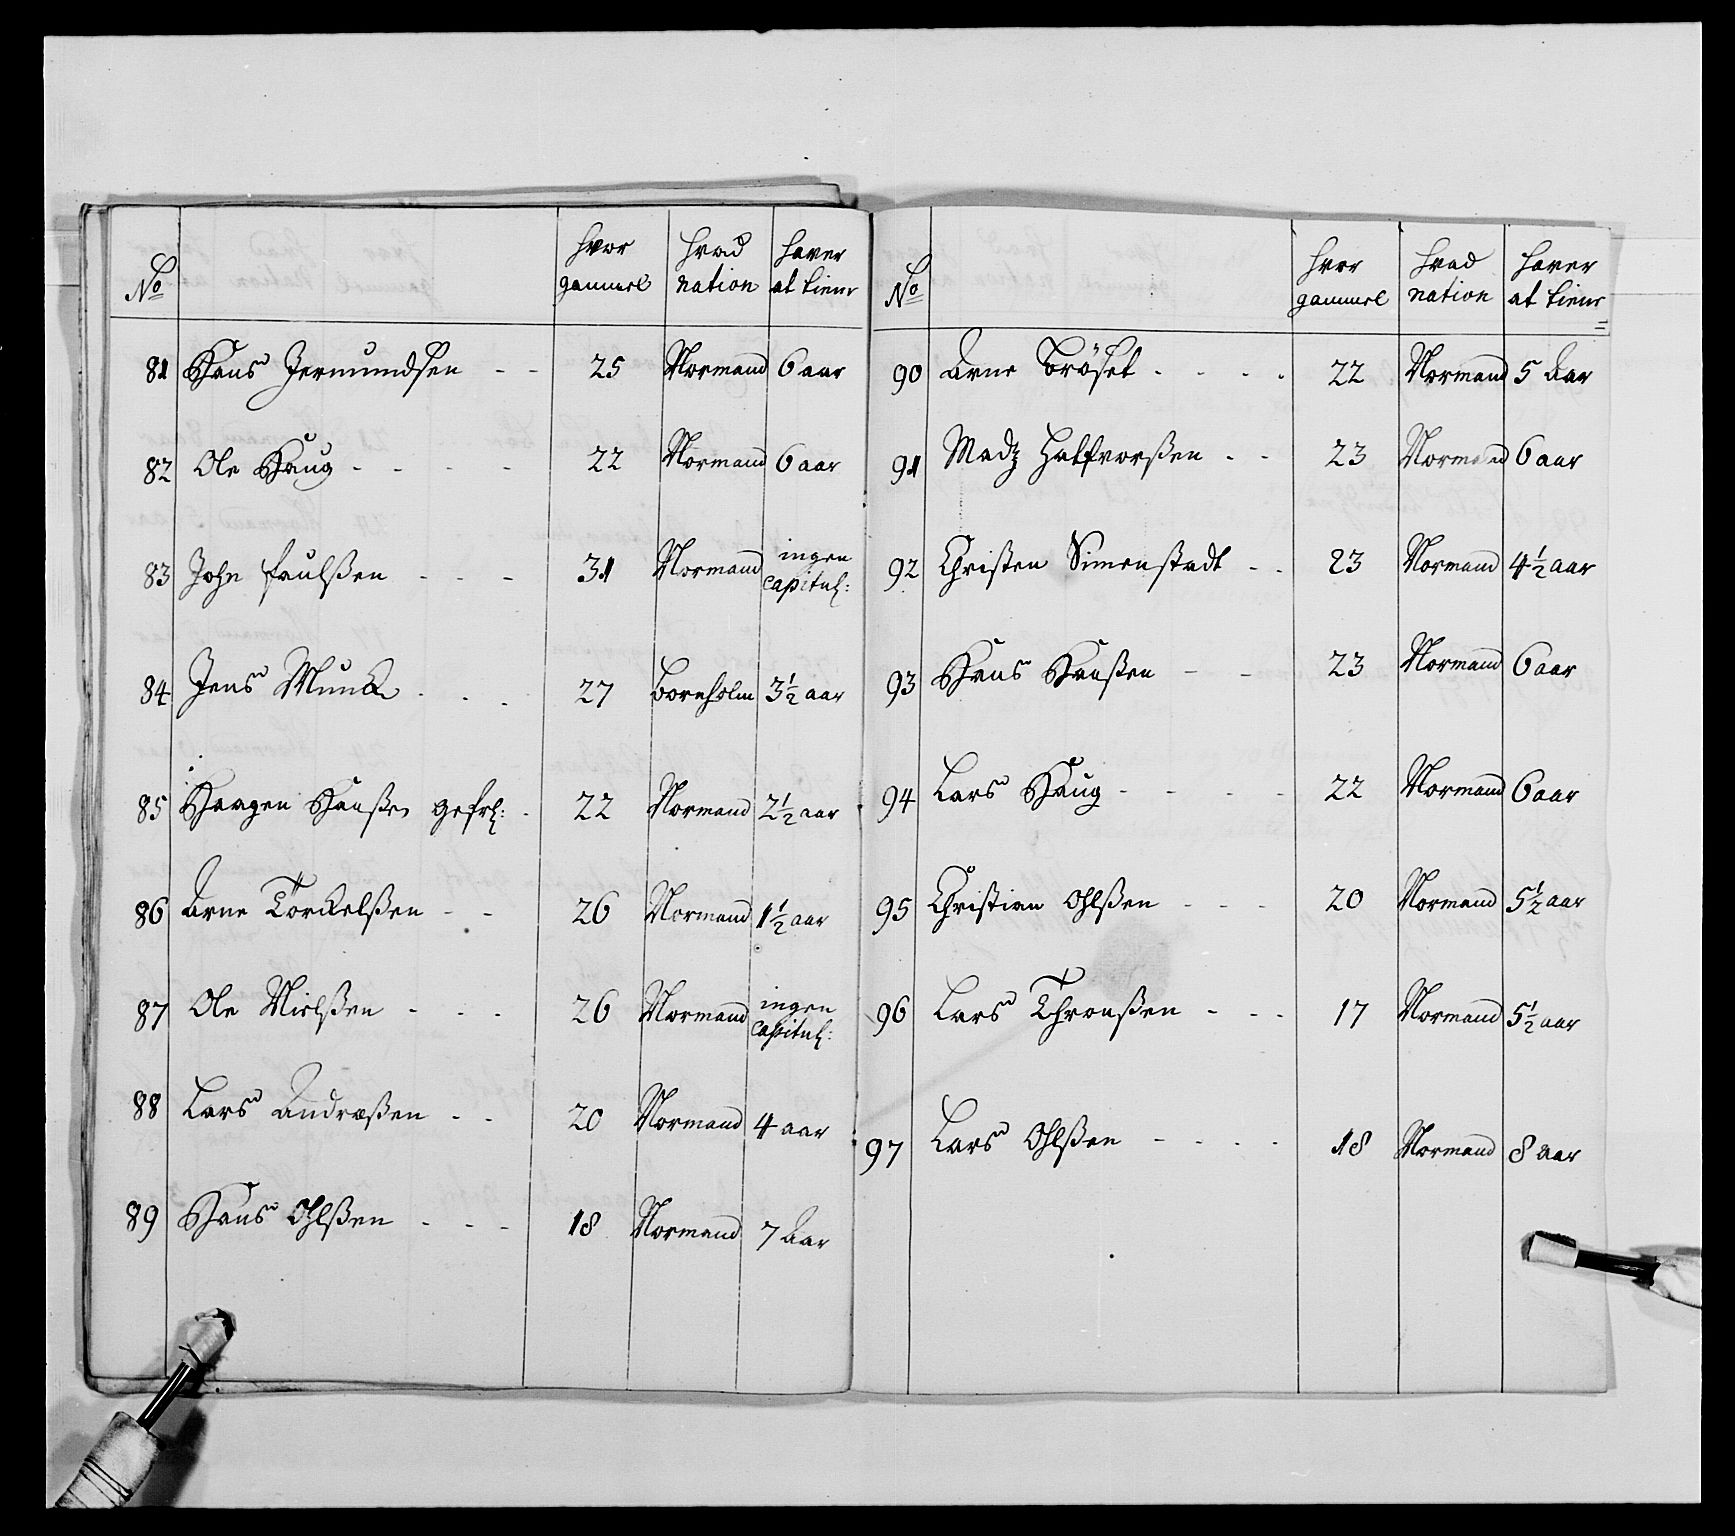 No | hvor gammel | hvad nation | haver at tiene
81 Hans Jermundsen - - 25 Normand 6 aar
82 Ole Haug - - - - 22 Normand 6 aar
83 John Paulßen - - - 31 Normand ingen capitul:
84 Jens Munck - - - 27 Bornholm 3½ aar
85 Haagen Hanßen gefr: - 22 Normand 2½ aar
86 Arne Torckelßen - - 26 Normand 1½ aar
87 Ole Nielßen - - - 26 Normand ingen capitul:
88 Lars Andræßen - - 20 Normand 4 aar
89 Hans Ohlßen - - - 18 Normand 7 Aar
No | hvor gammel | hvad nation | haver at tiene
90 Arne Bröset - - - - 22 Normand 5 Aar
91 Madz Halfvorßen - - 23 Normand 6 aar
92 Christen Simenstadt - - 23 Normand 4½ aar
93 Hans Hanßen - - 23 Normand 6 aar
94 Lars Haug - - - - 22 Normand 6 aar
95 Christian Ohlßen - - - 20 Normand 5½ aar
96 Lars Thronßen - - - 17 Normand 5½ aar
97 Lars Ohlßen - - - - 18 Normand 8 aar